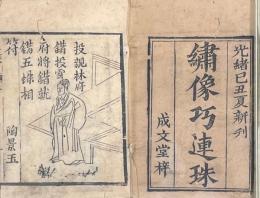 光緒己丑夏新刊
繡像巧連珠
成文堂梓
投親林府
錯投賈
府將錯就
錯五珠相
符
陶景玉